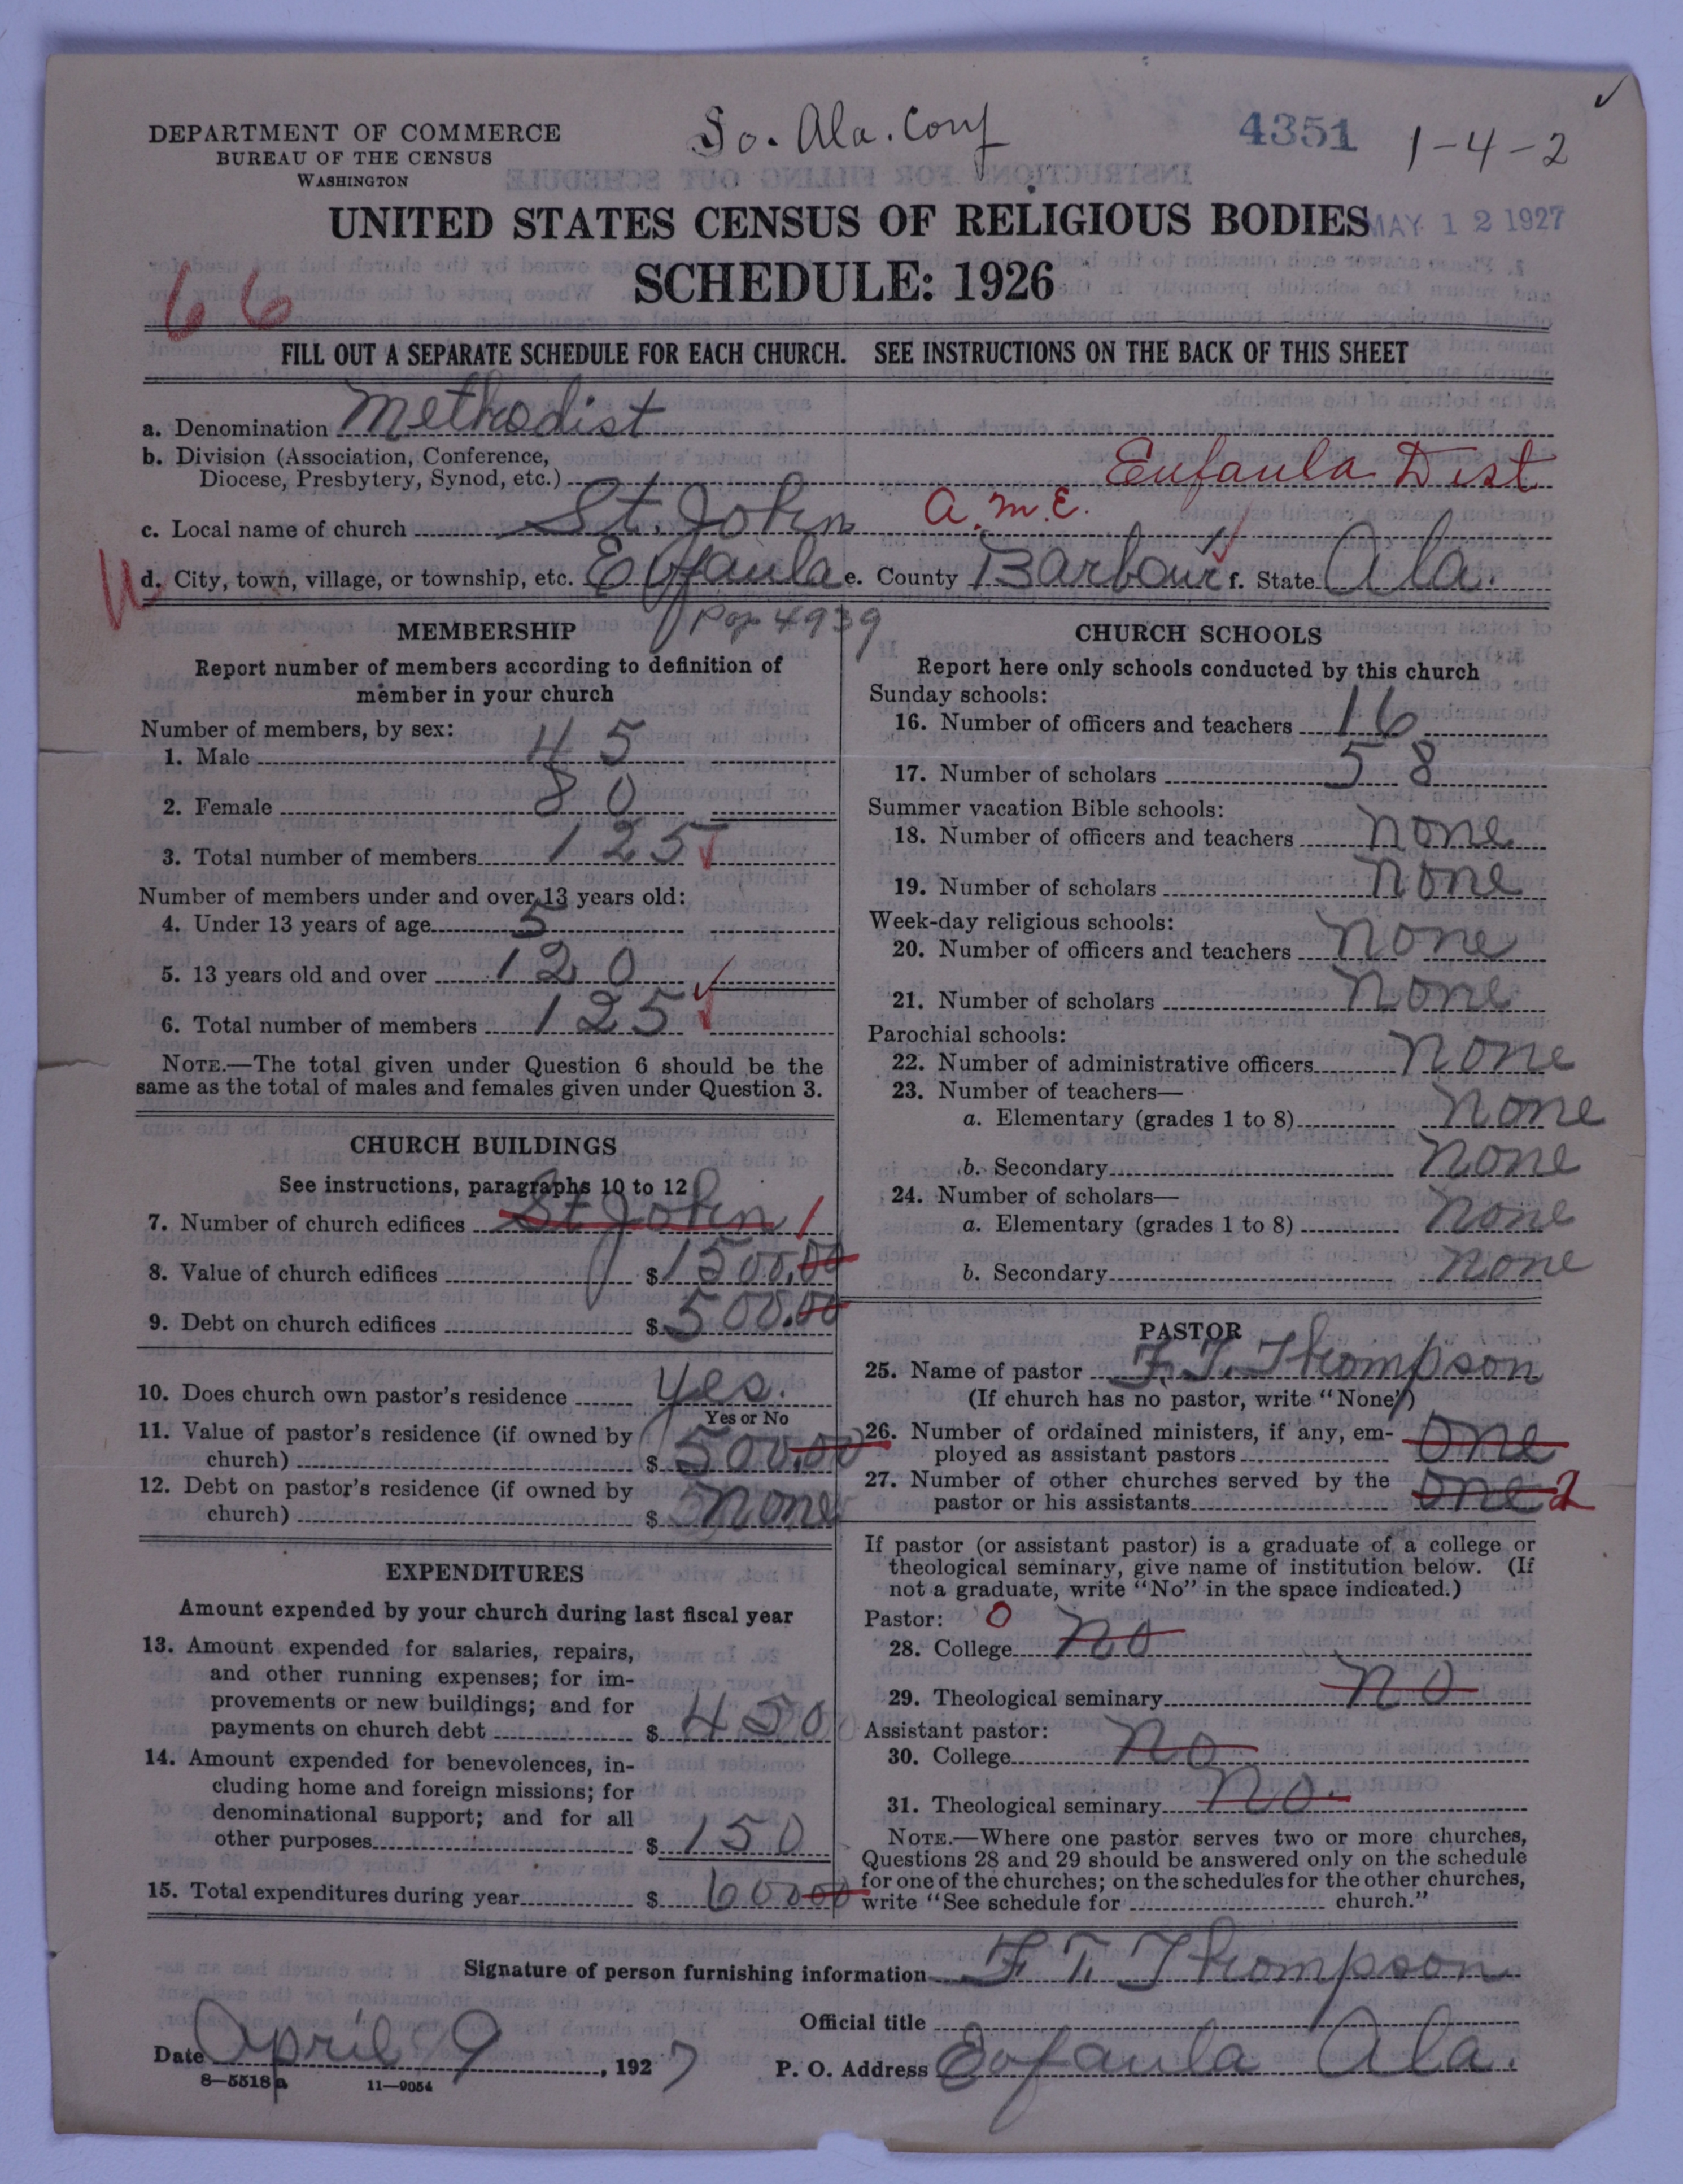 So. Ala. Conf
4351
1-4-2
DEPARTMENT OF COMMERCE
BUREAU OF THE CENSUS
WASHINGTON
UNITED STATES CENSUS OF RELIGIOUS BODIES
MAY 12 1927
SCHEDULE: 1926
66
FILL OUT A SEPARATE SCHEDULE FOR EACH CHURCH. SEE INSTRUCTIONS ON THE BACK OF THIS SHEET
a. Denomination Methodist
b. Division (Association, Conference,
Diocese, Presbytery, Synod, etc.) Eufaula Dist
c. Local name of church St. John A.M.E.
d. City, town, village, or township, etc. Eufaula e. County Barbour f. State Ala.
Pop 4939
MEMBERSHIP
Report number of members according to definition of
member in your church
Number of members, by sex:
1. Male 45
2. Female 80
3. Total number of members 125
Number of members under and over 13 years old:
4. Under 13 years of age 5
5. 13 years old and over 120
6. Total number of members 125
NOTE.—The total given under Question 6 should be the
same as the total of males and females given under Question 3.
CHURCH BUILDINGS
See instructions, paragraphs 10 to 12
7. Number of church edifices St John 1
8. Value of church edifices $1500.00
9. Debt on church edifices $500.00
10. Does church own pastor's residence yes.
Yes or No
11. Value of pastor's residence (if owned by
church) $500.00
12. Debt on pastor's residence (if owned by
church) $ none
EXPENDITURES
Amount expended by your church during last fiscal year
13. Amount expended for salaries, repairs,
and other running expenses; for im-
provements or new buildings; and for
payments on church debt $450
14. Amount expended for benevolences, in-
cluding home and foreign missions; for
denominational support; and for all
other purposes $150
15. Total expenditures during year $60000
CHURCH SCHOOLS
Report here only schools conducted by this church
Sunday schools:
16. Number of officers and teachers 16
17. Number of scholars 58
Summer vacation Bible schools:
18. Number of officers and teachers none
19. Number of scholars none
Week-day religious schools:
20. Number of officers and teachers none
21. Number of scholars none
Parochial schools:
22. Number of administrative officers none
23. Number of teachers—
a. Elementary (grades 1 to 8) none
b. Secondary none
24. Number of scholars—
a. Elementary (grades 1 to 8) none
b. Secondary none
PASTOR
25. Name of pastor F. T. Thompson
(If church has no pastor, write "None")
26. Number of ordained ministers, if any, em-
ployed as assistant pastors one
27. Number of other churches served by the
pastor or his assistants one 2
If pastor (or assistant pastor) is a graduate of a college or
theological seminary, give name of institution below. (If
not a graduate, write "No" in the space indicated.)
Pastor: 0
28. College no
29. Theological seminary no
Assistant pastor:
30. College no
31. Theological seminary no.
NOTE.—Where one pastor serves two or more churches,
Questions 28 and 29 should be answered only on the schedule
for one of the churches; on the schedules for the other churches,
write "See schedule for church."
Signature of person furnishing information F. T. Thompson
Official title
Date April 9, 1927 P. O. Address Eofaula Ala.
8—5518a 11—9054